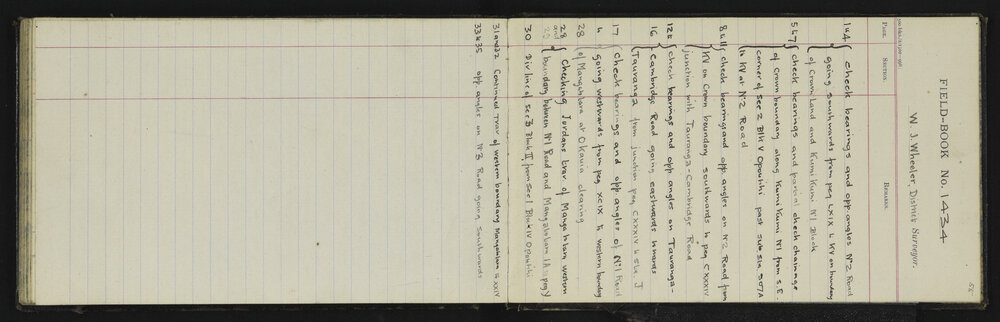 FIELD-BOOK No. 1434
W. J. Wheeler, District Surveyor.
PAGE. SECTION. REMARKS.
1 to 4 check bearings and opp angles No 2 Road
going southwards from peg LXIX to XV on boundary
of Crown Land and Kumi Kumi No 1 Block
5 to 7 check bearings and partial check chainage
of Crown boundary along Kumi Kumi No 1 from S.E.
corner of sec 2 Blk V Opoutihi past sub sta 307A
to XV at No 2 Road
8 to 11 check bearings and opp. angles on No 2 Road from
XV on Crown boundary southwards to peg CXXXIV
junction with Tauranga-Cambridge Road
12 to check bearings and opp angles on Tauranga-
16 Cambridge Road going eastwards towards
Tauranga from junction peg CXXXIV to sta. J
17 Check bearings and opp angles of No 1 Road
to going westwards from peg XCIX to western boundary
28 of Mangatotara at Okauia clearing
28 Checking Jordans trav of Mangatotara western
and 29 boundary between No 1 Road and Mangatotara 1A peg V
30 Div line of sec 3 Block II from sec 1 Block IV Opoutihi
31 and 32 Continued Trav of western boundary Mangatotara to XXIV
33 to 35 opp angles on No 3 Road going southwards